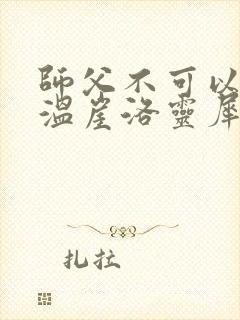 師父不可以
溫崖洛靈犀
扎拉